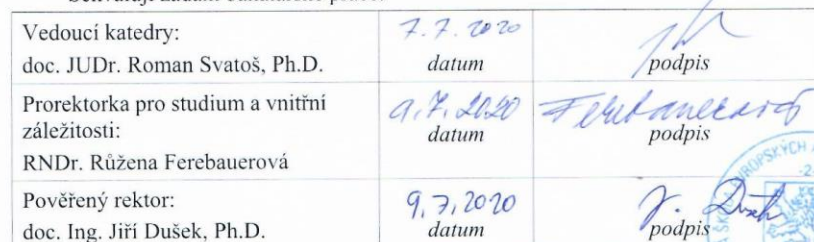 Vedoucí katedry:
doc. JUDr. Roman Svatoš, Ph.D.
7.7.2020
datum
podpis
Prorektorka pro studium a vnitřní
záležitosti:
RNDr. Růžena Ferebauerová
9.7.2020
datum
Ferebauerová
podpis
Pověřený rektor:
doc. Ing. Jiří Dušek, Ph.D.
9.7.2020
datum
podpis